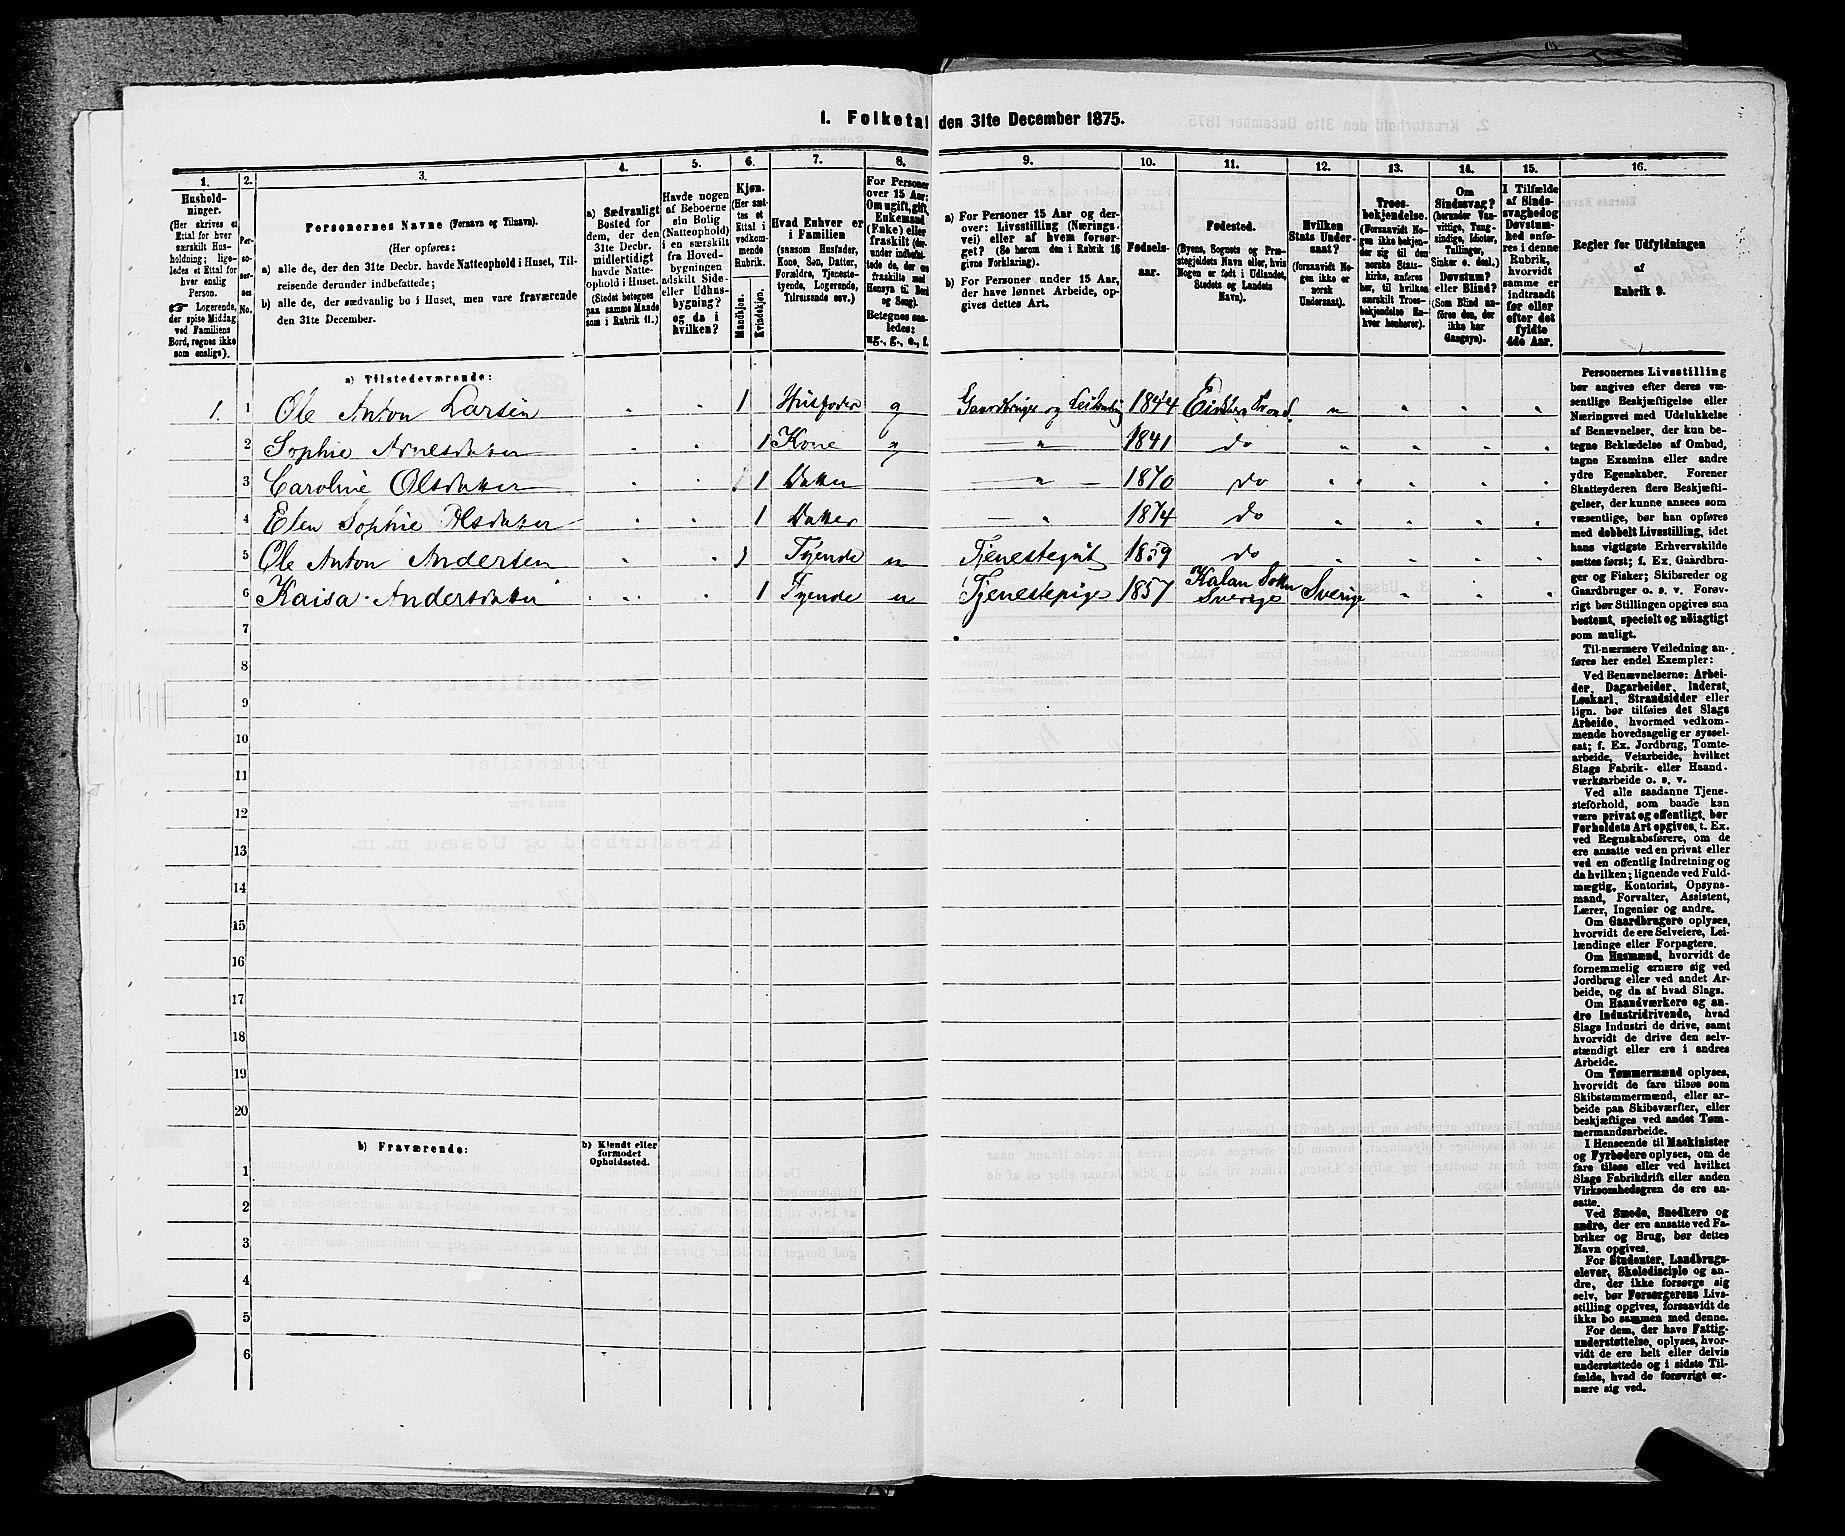 I. Folketal den 31te December 1875.
1.
Hushold-
ninger.
(Her skrives et
Ettal for hver
særskilt Hus-
holdning; lige-
ledes et Ettal for
hver enslig
Person.
☛ Logerende,
der spise Middag
ved Familiens
Bord, regnes ikke
som enslige).
2.
Per-
soner-
nes
No.
3.
Personernes Navne (Fornavn og Tilnavn).
(Her opføres:
a) alle de, der den 31te Decbr. havde Natteophold i Huset, Til-
reisende derunder indbefattede;
b) alle de, der sædvanlig bo i Huset, men vare fraværende
den 31te December.
4.
a) Sædvanligt
Bosted for
dem, der den
31te Decbr.
midlertidigt
havde Natte-
ophold i Huset.
(Stedet betegnes
paa samme Maade
som i Rubrik 11.)
5.
Havde nogen
af Beboerne
sin Bolig
(Natteophold)
i en særskilt
fra Hoved-
bygningen
adskilt Side-
eller Udhus-
bygning?
og da i
hvilken?
6.
Kjøn.
(Her sæt-
tes et
Ettal i
vedkom-
mende
Rubrik.
Mandkjøn.
Kvindekjøn.
7.
Hvad Enhver er
i Familien
(saasom Husfader,
Kone, Søn, Datter,
Forældre, Tjeneste-
tyende, Logerende,
Tilreisende osv.)
8.
For Personer
over 15 Aar:
Om ugift, gift,
Enkemand
(Enke) eller
fraskilt (der-
under indbefat-
tede de, der ere
fraskilte med
Hensyn til Bord
og Seng).
Betegnes saa-
ledes:
ug., g., e., f.
9.
a) For Personer 15 Aar og der-
over: Livsstilling (Nærings-
vei) eller af hvem forsør-
get? (Se herom den i Rubrik 16
givne Forklaring).
b) For Personer under 15 Aar,
der have lønnet Arbeide, op-
gives dettes Art.
10.
Fødsels-
aar.
11.
Fødested.
(Byens, Sognets og Præ-
stegjeldets Navn eller, hvis
Nogen er født i Udlandet,
Stedets og Landets
Navn).
12.
Hvilken
Stats Under-
saat?
(forsaavidt No-
gen ikke er
norsk
Undersaat).
13.
Troes-
bekjendelse.
(Forsaavidt No-
gen ikke bekjen-
der sig til den
norske Stats-
kirke, anføres
her, til hvilken
særskilt Troes-
bekjendelse En-
hver henhører).
14.
Om
Sindssvag?
(herunder Van-
vittige, Tung-
sindige, Idioter,
Tullinger,
Sinker o. desl.)
Døvstum?
eller Blind?
(Som Blind an-
føres den, der
ikke har
Gangsyn).
15.
I Tilfælde
af Sinds-
svaghed og
Døvstum-
hed anfø-
res i denne
Rubrik,
hvorvidt
samme er
indtraadt
før eller
efter det
fyldte
4de Aar.
16.
Regler for Udfyldningen
af
Rubrik 9.
a) Tilstedeværende:
1. 1 Ole Anton Larsen " " 1 Husfader g Gaardbruger og 1844 " " " "
2 Sophie Arnesdatter " " 1 Kone g " 1841 do " " " "
3 Caroline Olsdatter " " 1 Datter " 1870 do " " " "
4 Elen Sophie Olsdatter " " 1 Datter " 1874 do " " " "
5 Ole Anton Andersen " " 1 Tyende u Tjenestegut 1859 do " " " "
6 Kaisa Andersdatter " " 1 Tyende u Tjenestepige 1857 Sverige Sverige " " "
7
8
9
10
11
12
13
14
15
16
17
18
19
20
b) Fraværende:
b) Kjendt eller
formodet
Opholdssted.
1
2
3
4
5
6
Personernes Livsstilling
bør angives efter deres væ-
sentlige Beskjæftigelse eller
Næringsvei med Udelukkelse
af Benævnelser, der kun be-
tegne Beklædelse af Ombud,
tagne Examina eller andre
ydre Egenskaber. Forener
Skatteyderen flere Beskjæfti-
gelser, der kunne ansees som
væsentlige, bør han opføres
med dobbelt Livsstilling, idet
hans vigtigste Erhvervskilde
sættes først; f. Ex. Gaardbru-
ger og Fisker; Skibsreder og
Gaardbruger o. s. v. Forøv-
rigt bør Stillingen opgives saa
bestemt, specielt og nøiagtigt
som muligt.
Til nærmere Veiledning an-
føres her endel Exempler:
Ved Benævnelserne: Arbei-
der, Dagarbeider, Inderst,
Løskarl, Strandsidder eller
lign. bør tilføies det Slags
Arbeide, hvormed vedkom-
mende hovedsagelig er syssel-
sat; f. Ex. Jordbrug, Tomte-
arbeide, Veiarbeide, hvilket
Slags Fabrik- eller Haand-
værksarbeide o. s. v.
Ved alle saadanne Tjene-
steforhold, som baade kan
være privat og offentligt, bør
Forholdets Art opgives, t. Ex.
ved Regnskabsførere, om de
ere ansatte ved en privat eller
ved en offentlig Indretning og
da hvilken; lignende ved Fuld-
mægtig, Kontorist, Opsyns-
mand, Forvalter, Assistent,
Lærer, Ingeniør og andre.
Om Gaardbrugere oplyses,
hvorvidt de ere Selveiere, Lei-
lændinge eller Forpagtere.
Om Husmænd, hvorvidt de
fornemmelig ernære sig ved
Jordbrug eller ved andet Ar-
beide, og da af hvad Slags.
Om Haandværkere og an-
dre Industridrivende, hvad
Slags Industri de drive, samt
hvorvidt de drive den selv-
stændigt eller ere i andres
Arbeide.
Om Tømmermænd oplyses,
hvorvidt de fare tilsøs som
Skibstømmermænd, eller ar-
beide paa Skibsværfter, eller
beskjæftiges ved andet Tøm-
mermandsarbeide.
I Henseende til Maskinister
og Fyrbødere oplyses, om de
fare tilsøs eller ved hvilket
Slags Fabrikdrift eller anden
Virksomhedsgren de ere an-
satte.
Ved Smede, Snedkere og
andre, der ere ansatte ved Fa-
briker og Brug, bør dettes
Navn opgives.
For Studenter, Landbrugs-
elever, Skoledisciple og an-
dre, der ikke forsørge sig
selv, bør Forsørgerens Livs-
stilling opgives, forsaavidt de
ikke bo sammen med denne.
For dem, der have Fattig-
understøttelse, oplyses, hvor-
vidt de ere helt eller delvis
understøttede og i sidste Til-
fælde, hvad de forøvrigt er-
nære sig ved.